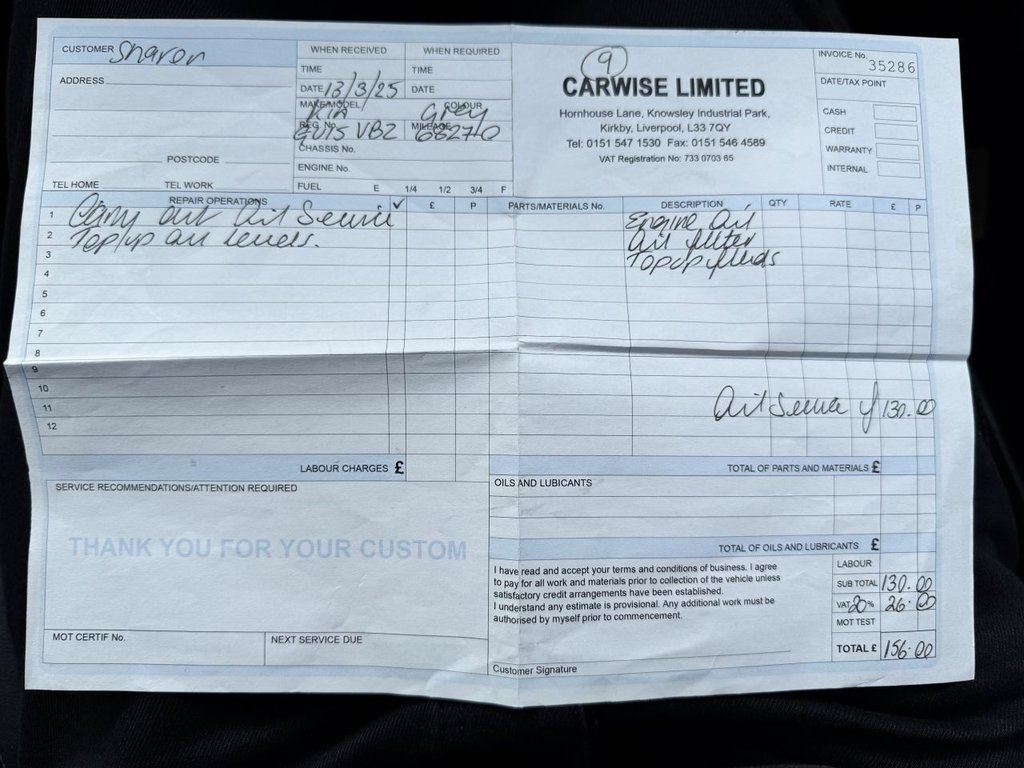 CUSTOMER Sharon
ADDRESS
POSTCODE
TEL HOME TEL WORK
WHEN RECEIVED WHEN REQUIRED
TIME TIME
DATE 13/3/25 DATE
MAKE/MODEL KIA COLOUR Grey
REG No. V15 VBZ MILEAGE 68270
CHASSIS No.
ENGINE No.
FUEL E 1/4 1/2 3/4 F
9
CARWISE LIMITED
Hornhouse Lane, Knowsley Industrial Park,
Kirkby, Liverpool, L33 7QY
Tel: 0151 547 1530 Fax: 0151 546 4589
VAT Registration No: 733 0703 65
INVOICE No. 35286
DATE/TAX POINT
CASH
CREDIT
WARRANTY
INTERNAL
REPAIR OPERATIONS ✓ £ P PARTS/MATERIALS No. DESCRIPTION QTY RATE £ P
1 Carry out Oil Service Engine Oil
2 Top/up all levels. Oil filter
3 Top up fluids
4
5
6
7
8
9
10
11 Oil Service 130.00
12
LABOUR CHARGES £ TOTAL OF PARTS AND MATERIALS £
SERVICE RECOMMENDATIONS/ATTENTION REQUIRED
THANK YOU FOR YOUR CUSTOM
MOT CERTIF No. NEXT SERVICE DUE
OILS AND LUBICANTS
TOTAL OF OILS AND LUBRICANTS £
I have read and accept your terms and conditions of business. I agree
to pay for all work and materials prior to collection of the vehicle unless
satisfactory credit arrangements have been established.
I understand any estimate is provisional. Any additional work must be
authorised by myself prior to commencement.
Customer Signature
LABOUR
SUB TOTAL 130.00
VAT 20 % 26.00
MOT TEST
TOTAL £ 156.00